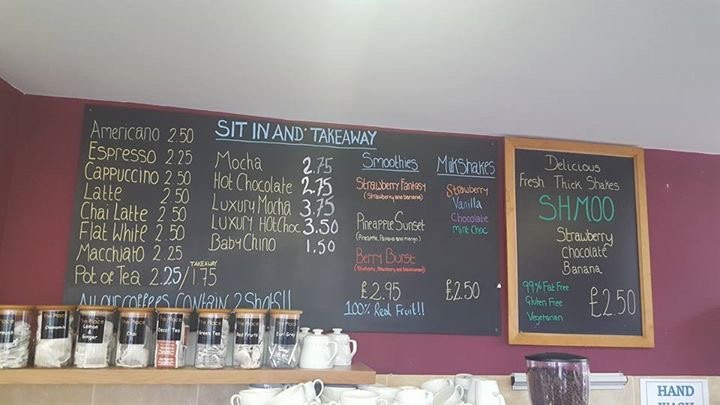 SIT IN AND TAKEAWAY
Americano 2.50
Espresso 2.25
Cappuccino 2.50
Latte 2.50
Chai Latte 2.50
Flat White 2.50
Macchiato 2.25
TAKEAWAY
Pot of Tea 2.25/1.75
All our coffees contain 2 shots!!
Mocha 2.75
Hot Chocolate 2.75
Luxury Mocha 3.75
Luxury Hot Choc 3.50
Baby Chino 1.50
Smoothies
Strawberry Fantasy
(Strawberry and banana)
Pineapple Sunset
(Pineapple, Banana and mango)
Berry Burst
£2.95
100% Real Fruit!!
Milkshakes
Strawberry
Vanilla
Chocolate
Mint Choc
£2.50
Delicious
Fresh Thick Shakes
SHMOO
Strawberry
Chocolate
Banana
99% Fat Free
Gluten Free
Vegetarian
£2.50
Lemon &
Ginger
Chai
Decaf Tea
Green Tea
Red Fruits
Earl Grey
HAND
WASH